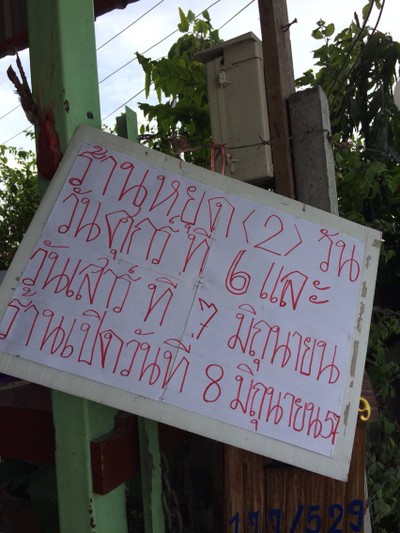 ร้านหยุด (2) วัน
วันศุกร์ ที่ 6 และ
วันเสาร์ ที่ 7 มิถุนายน
ร้านเปิดวันที่ 8 มิถุนายน 57
9
177/529